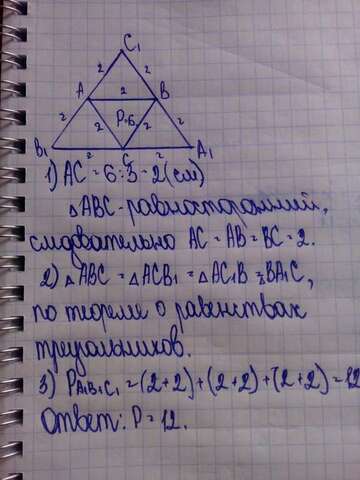 C₁
2 2
A 2 B
2 2 P=6 2 2
B₁ 2 C 2 A₁
1) AC = 6:3 = 2 (см)
△ABC - равносторонний,
следовательно AC = AB = BC = 2.
2) △ABC = △ACB₁ = △AC₁B = BA₁C,
по теореме о равенствах
треугольников.
3) PA₁B₁C₁ = (2+2)+(2+2)+(2+2)=12
Ответ: P = 12.